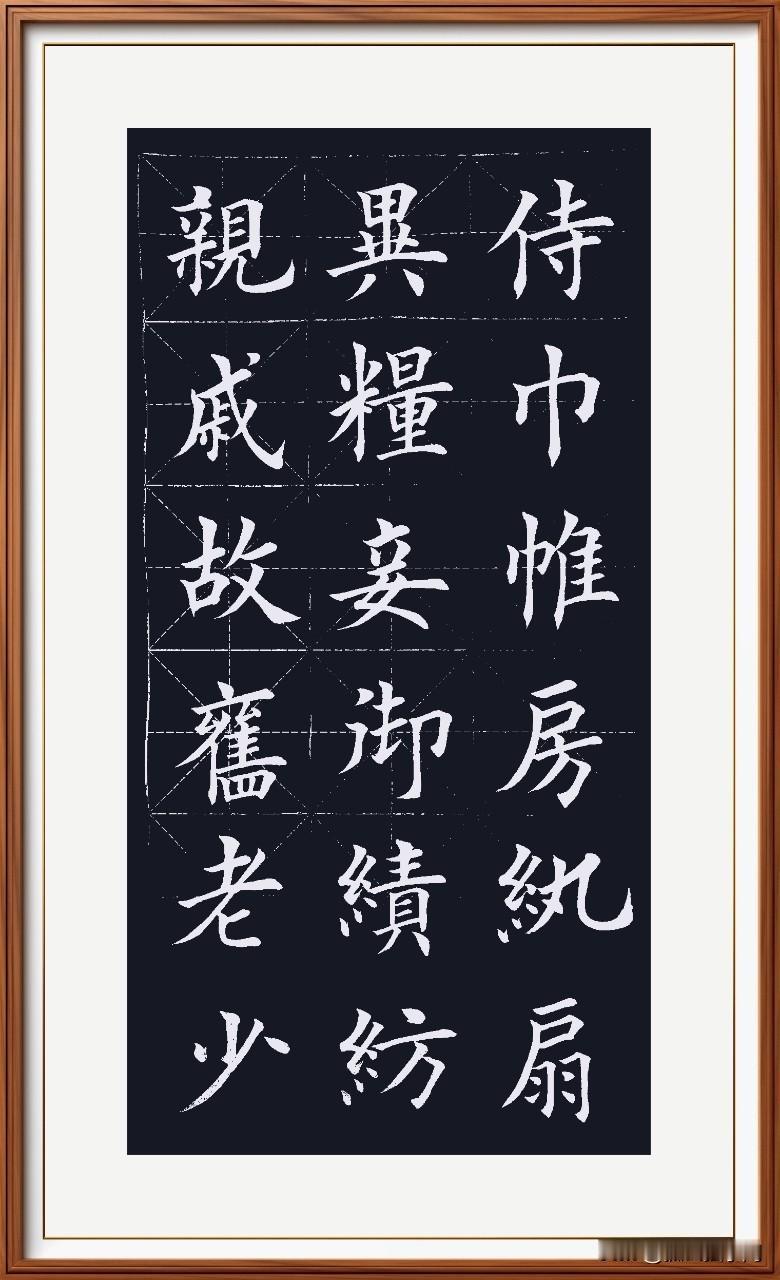 親戚故舊老少
異糧妾御績紡
侍巾帷房紈扇